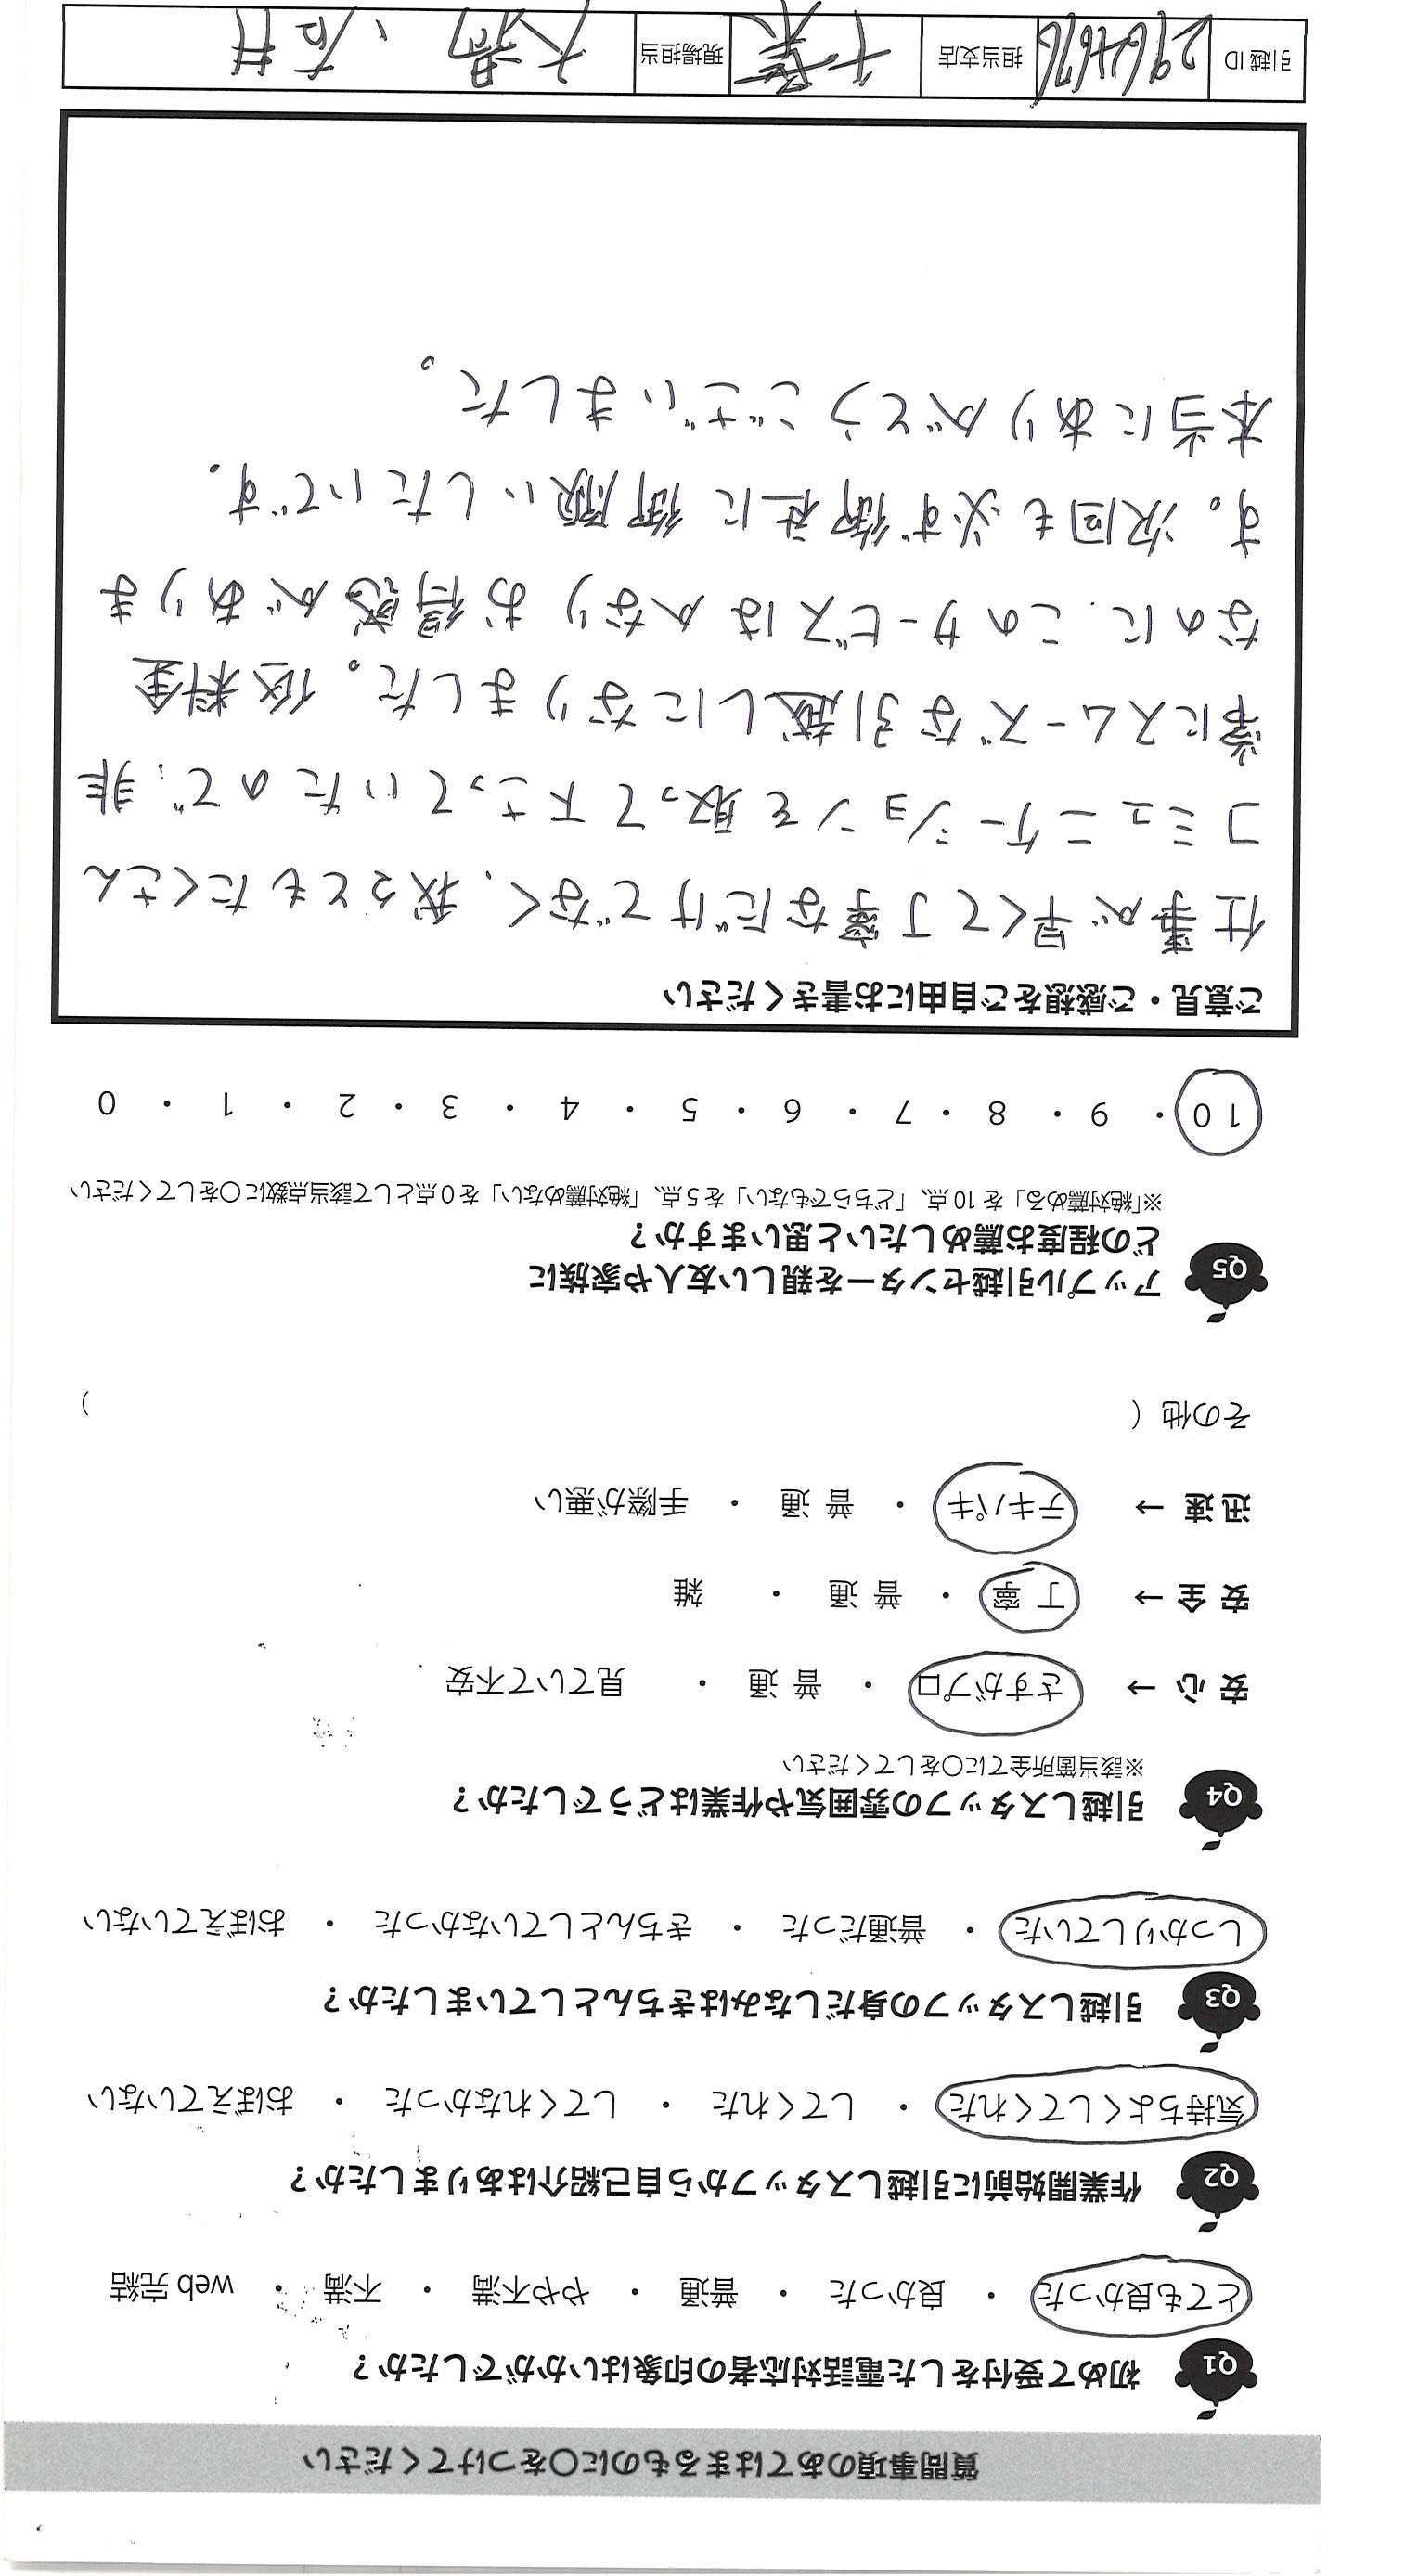 質問事項のあてはまるものに〇をつけてください
Q1 初めて受付をした電話対応者の印象はいかがでしたか？
とても良かった ・ 良かった ・ 普通 ・ やや不満 ・ 不満 ・ web 完結
Q2 作業開始前に引越しスタッフから自己紹介はありましたか？
気持ちよくしてくれた ・ してくれた ・ してくれなかった ・ おぼえていない
Q3 引越しスタッフの身だしなみはきちんとしていましたか？
しっかりしていた ・ 普通だった ・ きちんとしていなかった ・ おぼえていない
Q4 引越しスタッフの雰囲気や作業はどうでしたか？
※該当箇所全てに〇をしてください
安 心 → さすがプロ ・ 普 通 ・ 見ていて不安
安 全 → 丁 寧 ・ 普 通 ・ 雑
迅 速 → テキパキ ・ 普 通 ・ 手際が悪い
その他 （ ）
Q5 アップル引越センターを親しい友人や家族に
どの程度お薦めしたいと思いますか？
※「絶対薦める」を 10 点、「どちらでもない」を 5 点、「絶対薦めない」を 0 点として該当点数に〇をしてください
10 ・ 9 ・ 8 ・ 7 ・ 6 ・ 5 ・ 4 ・ 3 ・ 2 ・ 1 ・ 0
ご意見・ご感想をご自由にお書きください
仕事が早くて丁寧なだけでなく、我々ともたくさん
コミュニケーションを取って下さっていたので、非
常にスムーズな引越しになりました。低料金
なのに、このサービスはかなりお得感がありま
す。次回も必ず御社に御願いしたいです。
本当にありがとうございました。
引越 ID 2964676 担当支店 千葉 現場担当 大場、石井